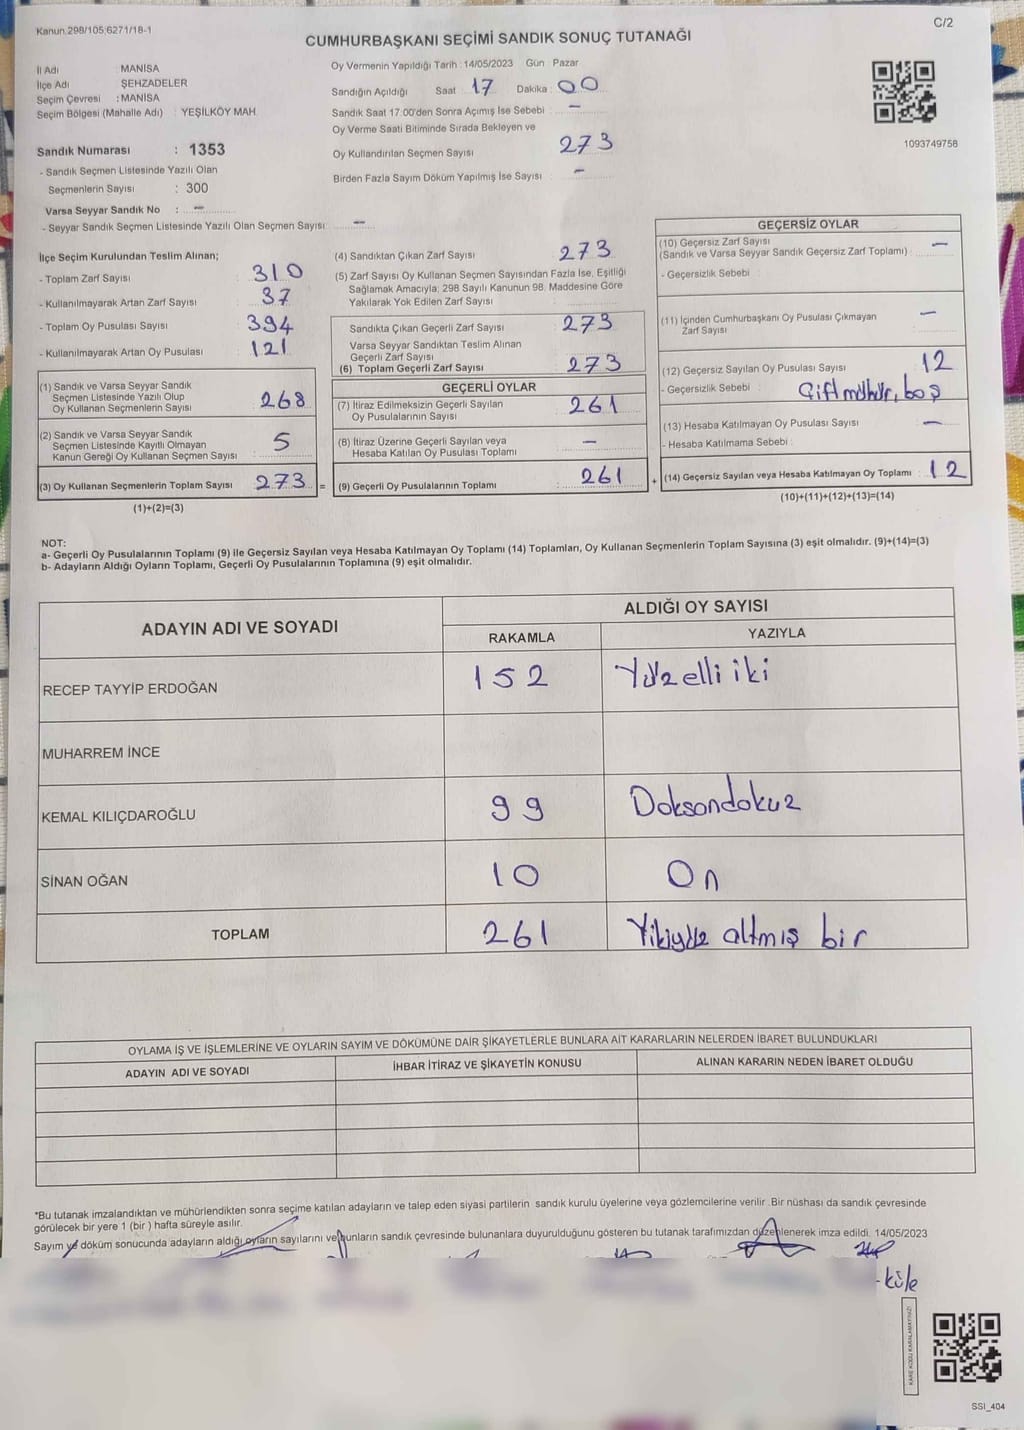 Kanun.298/105;6271/18-1
C/2
CUMHURBAŞKANI SEÇİMİ SANDIK SONUÇ TUTANAĞI
İl Adı : MANİSA
İlçe Adı : ŞEHZADELER
Seçim Çevresi : MANİSA
Seçim Bölgesi (Mahalle Adı) : YEŞİLKÖY MAH.
Sandık Numarası : 1353
- Sandık Seçmen Listesinde Yazılı Olan
Seçmenlerin Sayısı : 300
Varsa Seyyar Sandık No : -
- Seyyar Sandık Seçmen Listesinde Yazılı Olan Seçmen Sayısı: -
Oy Vermenin Yapıldığı Tarih : 14/05/2023 Gün Pazar
Sandığın Açıldığı Saat : 17 Dakika : 00
Sandık Saat 17:00'den Sonra Açımış İse Sebebi : -
Oy Verme Saati Bitiminde Sırada Bekleyen ve
Oy Kullandırılan Seçmen Sayısı : 273
Birden Fazla Sayım Döküm Yapılmış İse Sayısı : -
1093749758
İlçe Seçim Kurulundan Teslim Alınan;
- Toplam Zarf Sayısı : 310
- Kullanılmayarak Artan Zarf Sayısı : 37
- Toplam Oy Pusulası Sayısı : 394
- Kullanılmayarak Artan Oy Pusulası : 121
(1) Sandık ve Varsa Seyyar Sandık
Seçmen Listesinde Yazılı Olup
Oy Kullanan Seçmenlerin Sayısı : 268
(2) Sandık ve Varsa Seyyar Sandık
Seçmen Listesinde Kayıtlı Olmayan
Kanun Gereği Oy Kullanan Seçmen Sayısı : 5
(3) Oy Kullanan Seçmenlerin Toplam Sayısı : 273 =
(1)+(2)=(3)
(4) Sandıktan Çıkan Zarf Sayısı : 273
(5) Zarf Sayısı Oy Kullanan Seçmen Sayısından Fazla İse, Eşitliği
Sağlamak Amacıyla; 298 Sayılı Kanunun 98. Maddesine Göre
Yakılarak Yok Edilen Zarf Sayısı
Sandıkta Çıkan Geçerli Zarf Sayısı : 273
Varsa Seyyar Sandıktan Teslim Alınan
Geçerli Zarf Sayısı
(6) Toplam Geçerli Zarf Sayısı : 273
GEÇERLİ OYLAR
(7) İtiraz Edilmeksizin Geçerli Sayılan
Oy Pusulalarının Sayısı : 261
(8) İtiraz Üzerine Geçerli Sayılan veya
Hesaba Katılan Oy Pusulası Toplamı : -
(9) Geçerli Oy Pusulalarının Toplamı : 261 +
GEÇERSİZ OYLAR
(10) Geçersiz Zarf Sayısı
(Sandık ve Varsa Seyyar Sandık Geçersiz Zarf Toplamı) : -
- Geçersizlik Sebebi :
(11) İçinden Cumhurbaşkanı Oy Pusulası Çıkmayan
Zarf Sayısı : -
(12) Geçersiz Sayılan Oy Pusulası Sayısı : 12
- Geçersizlik Sebebi : Çift mühür, boş
(13) Hesaba Katılmayan Oy Pusulası Sayısı : -
- Hesaba Katılmama Sebebi :
(14) Geçersiz Sayılan veya Hesaba Katılmayan Oy Toplamı : 12
(10)+(11)+(12)+(13)=(14)
NOT:
a- Geçerli Oy Pusulalarının Toplamı (9) ile Geçersiz Sayılan veya Hesaba Katılmayan Oy Toplamı (14) Toplamları, Oy Kullanan Seçmenlerin Toplam Sayısına (3) eşit olmalıdır. (9)+(14)=(3)
b- Adayların Aldığı Oyların Toplamı, Geçerli Oy Pusulalarının Toplamına (9) eşit olmalıdır.
ADAYIN ADI VE SOYADI
ALDIĞI OY SAYISI
RAKAMLA YAZIYLA
RECEP TAYYİP ERDOĞAN 152 Yüzelli iki
MUHARREM İNCE
KEMAL KILIÇDAROĞLU 99 Doksandokuz
SİNAN OĞAN 10 On
TOPLAM 261 Yikiyüz altmış bir
OYLAMA İŞ VE İŞLEMLERİNE VE OYLARIN SAYIM VE DÖKÜMÜNE DAİR ŞİKAYETLERLE BUNLARA AİT KARARLARIN NELERDEN İBARET BULUNDUKLARI
ADAYIN ADI VE SOYADI İHBAR İTİRAZ VE ŞİKAYETİN KONUSU ALINAN KARARIN NEDEN İBARET OLDUĞU
*Bu tutanak imzalandıktan ve mühürlendikten sonra seçime katılan adayların ve talep eden siyasi partilerin sandık kurulu üyelerine veya gözlemcilerine verilir. Bir nüshası da sandık çevresinde
görülecek bir yere 1 (bir ) hafta süreyle asılır.
Sayım ve döküm sonucunda adayların aldığı oyların sayılarını ve bunların sandık çevresinde bulunanlara duyurulduğunu gösteren bu tutanak tarafımızdan düzenlenerek imza edildi. 14/05/2023
KARE KODU KARALAMAYINIZ!
SSI_404